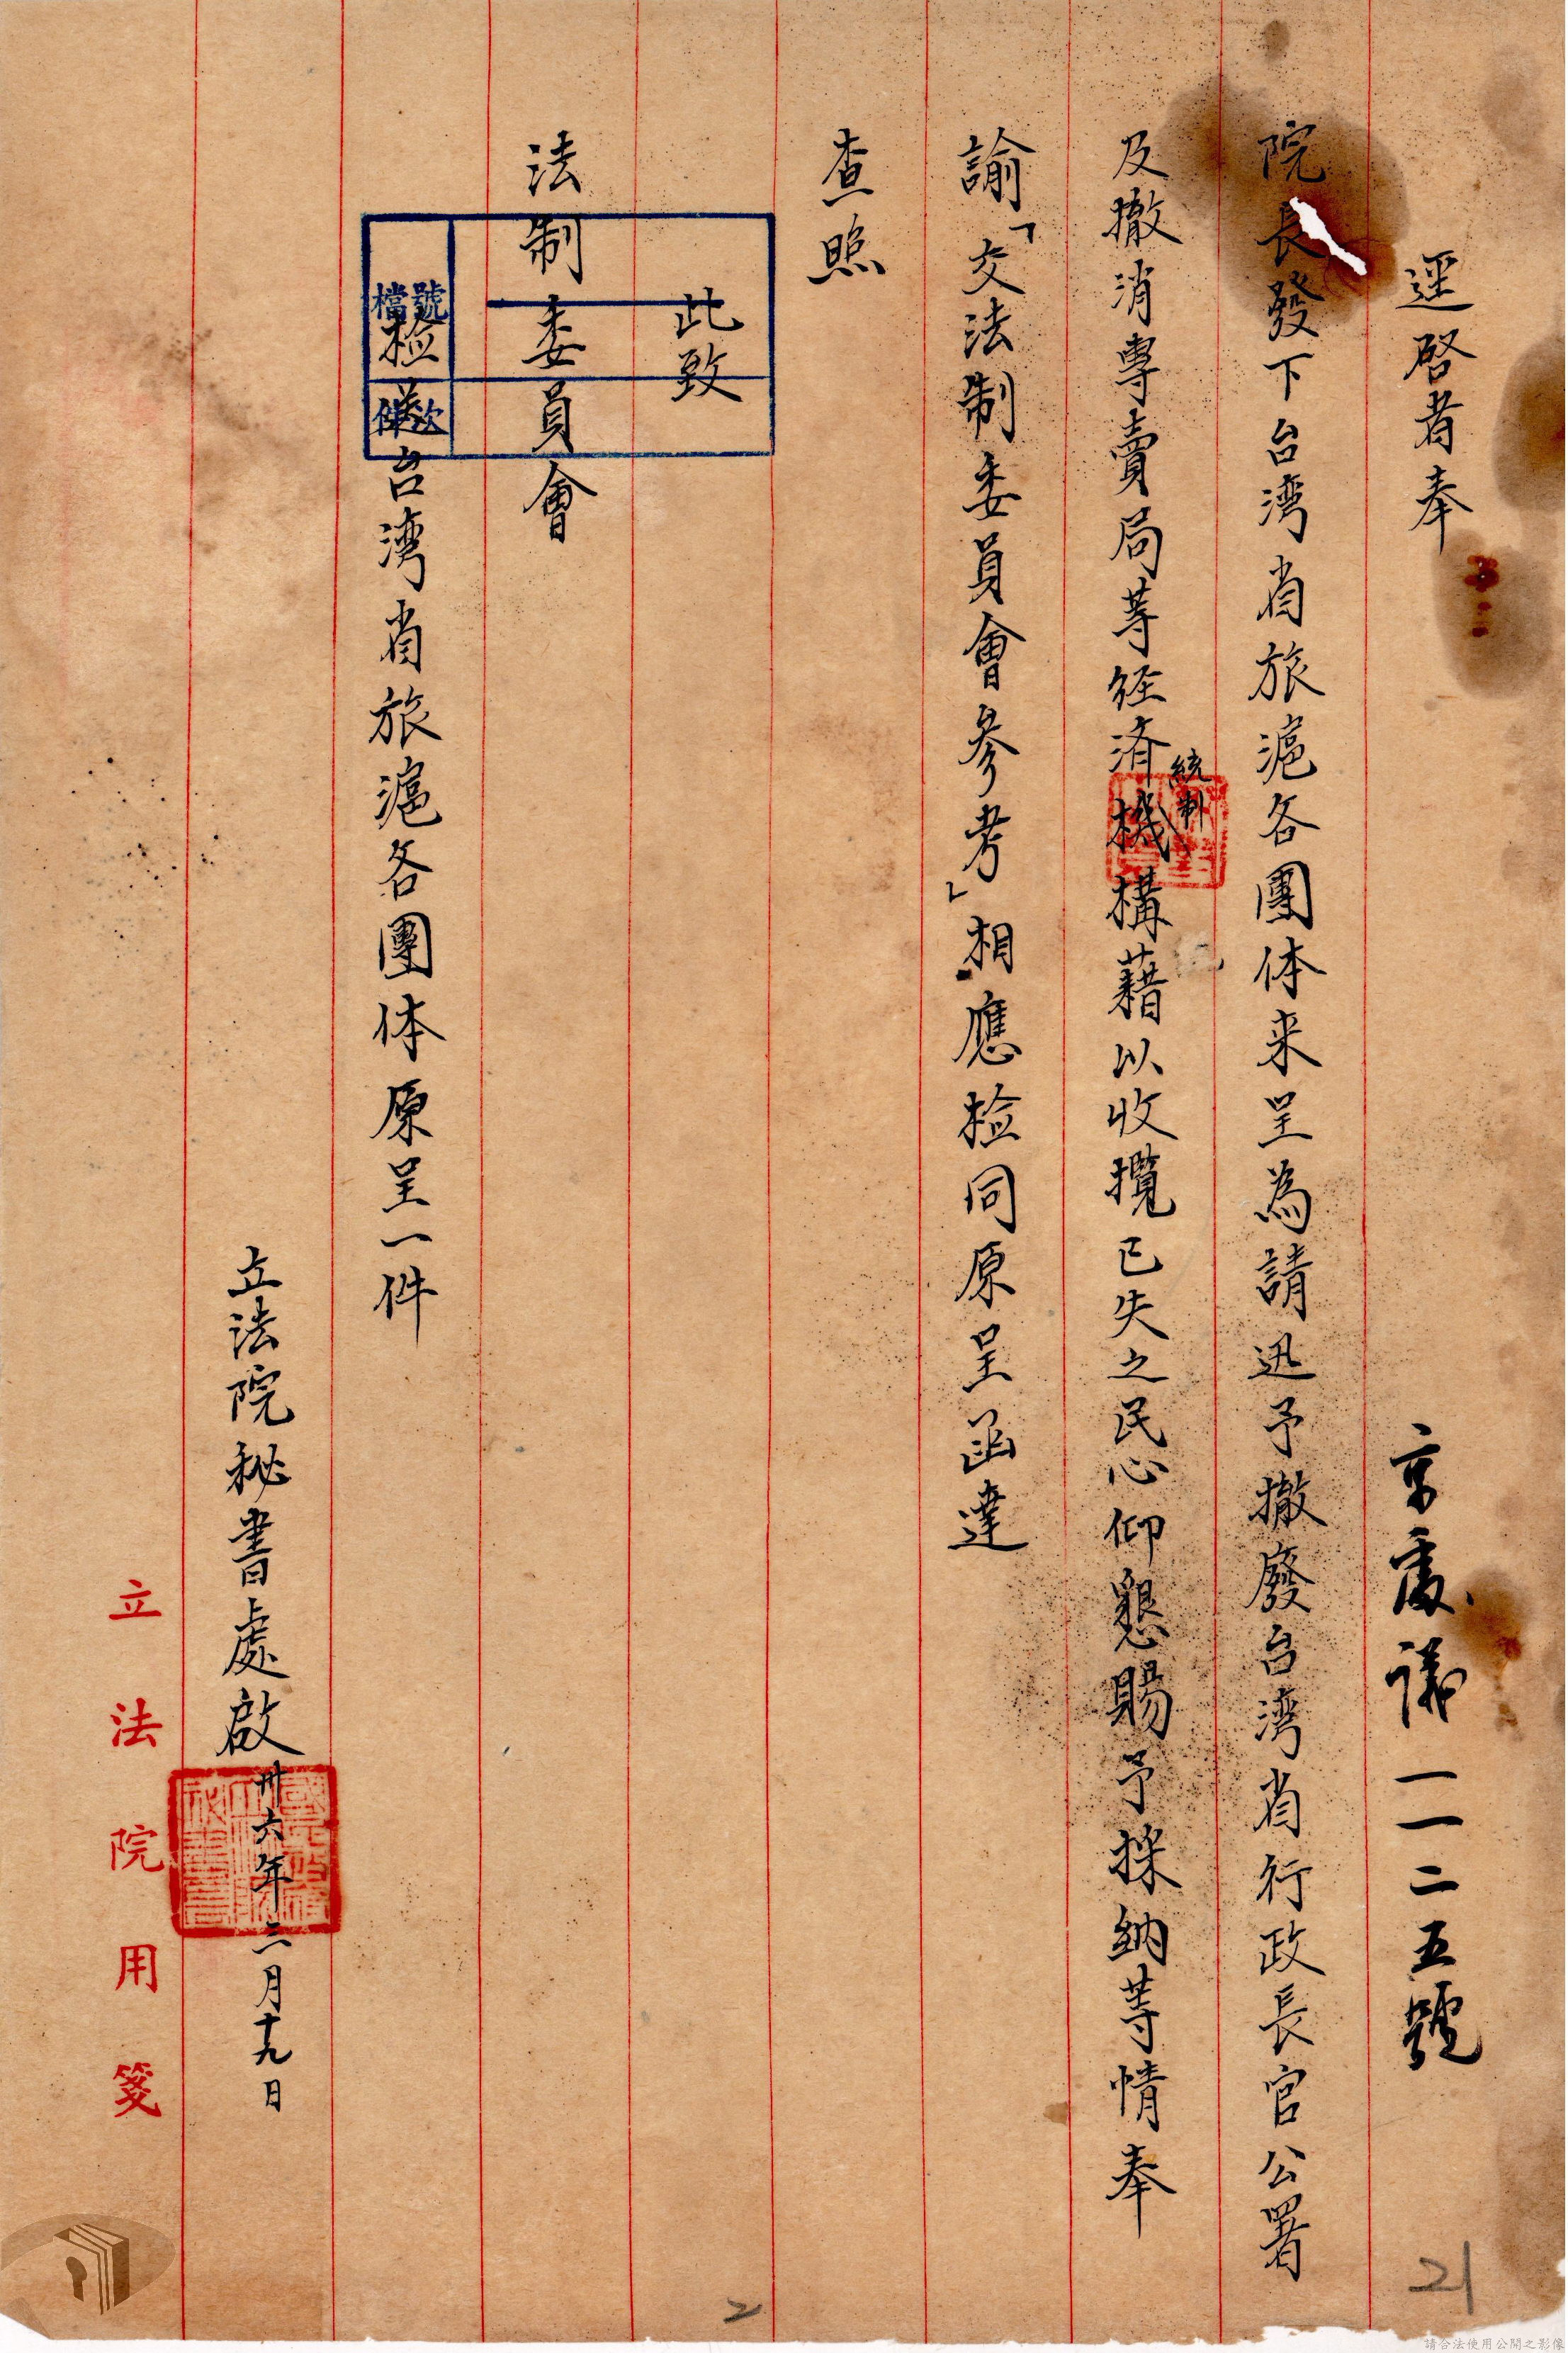 逕啓者奉
京處議一一二五號
院長發下台湾省旅滬各團体来呈為請迅予撤廢台湾省行政長官公署
及撤消專賣局等経済統制機構藉以收攬已失之民心仰懇賜予採納等情奉
諭「交法制委員會參考」相應檢同原呈函達
查照
此致
法制委員會
檔號
件次
檢送台湾省旅滬各團体原呈一件
立法院秘書處啟卅六年二月十九日
立法院用箋
21
2
請合法使用公開之影像